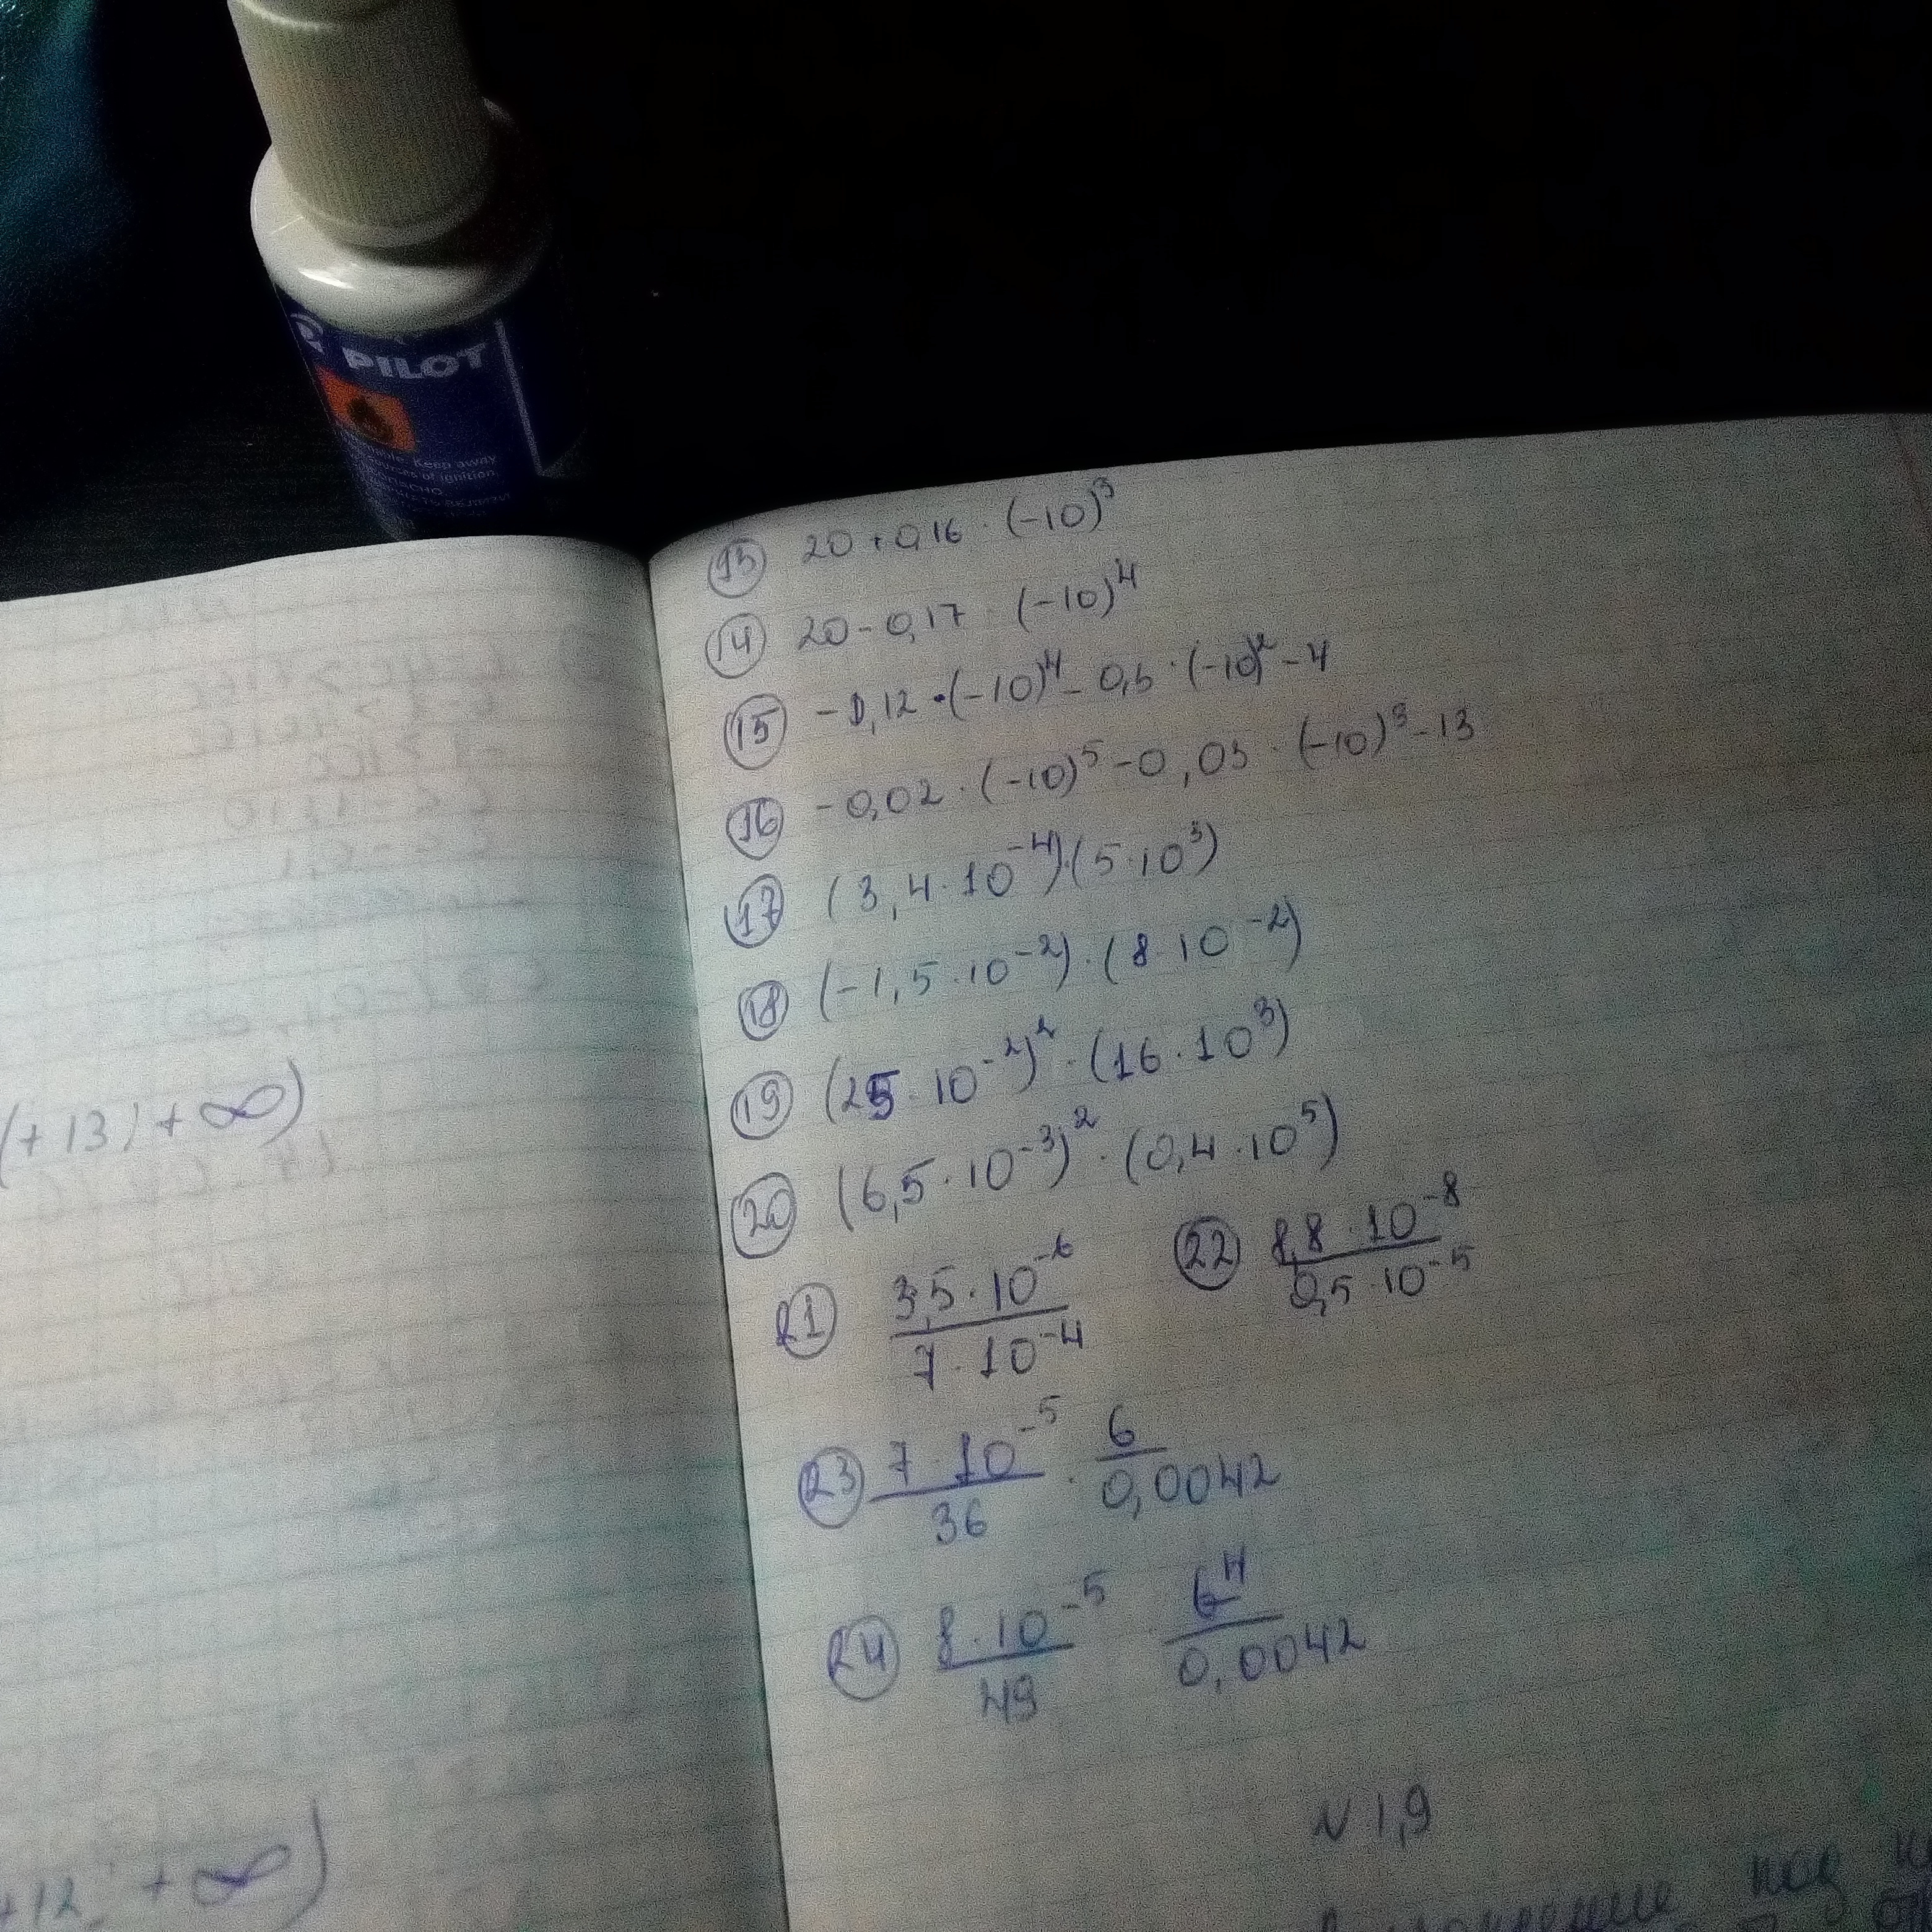 PILOT
Keep away
sources of ignition
(+13; +∞)
+12; +∞)
13 20 + 0,16 · (-10)³
14 20 - 0,17 · (-10)⁴
15 - 0,12 · (-10)⁴ - 0,5 · (-10)² - 4
16 - 0,02 · (-10)⁵ - 0,03 · (-10)³ - 13
17 (3,4 · 10⁻⁴)·(5 · 10³)
18 (-1,5 · 10⁻²) · (8 · 10⁻²)
19 (25 · 10⁻²)² · (16 · 10³)
20 (6,5 · 10⁻³)² · (0,4 · 10⁵)
21 3,5 · 10⁻⁶ / 7 · 10⁻⁴ 22 8,8 · 10⁻⁸ / 0,5 · 10⁻⁵
23 7 · 10⁻⁵ / 36 · 6 / 0,0042
24 8 · 10⁻⁵ / 49 6⁴ / 0,0042
N 1,9
под